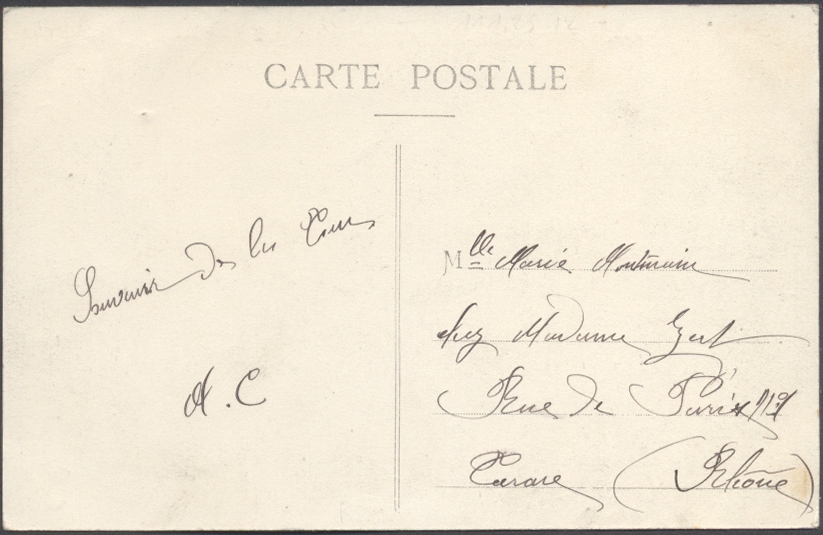 CARTE POSTALE
Souvenir de
A. C
Mlle Marie Montmain
chez Madame
Rue de Paris
Tarare (Rhône)